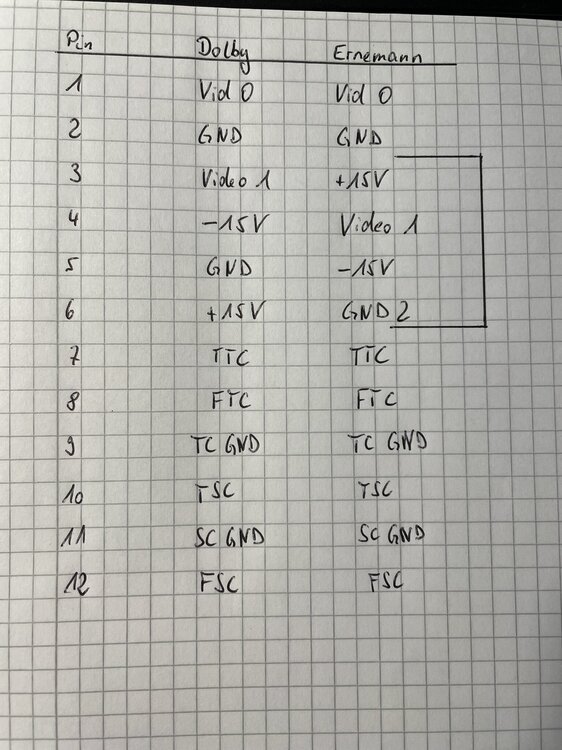 Pin Dolby Ernemann
1 Vid 0 Vid 0
2 GND GND
3 Video 1 +15V
4 -15V Video 1
5 GND -15V
6 +15V GND 2
7 TTC TTC
8 FTC FTC
9 TC GND TC GND
10 TSC TSC
11 SC GND SC GND
12 FSC FSC